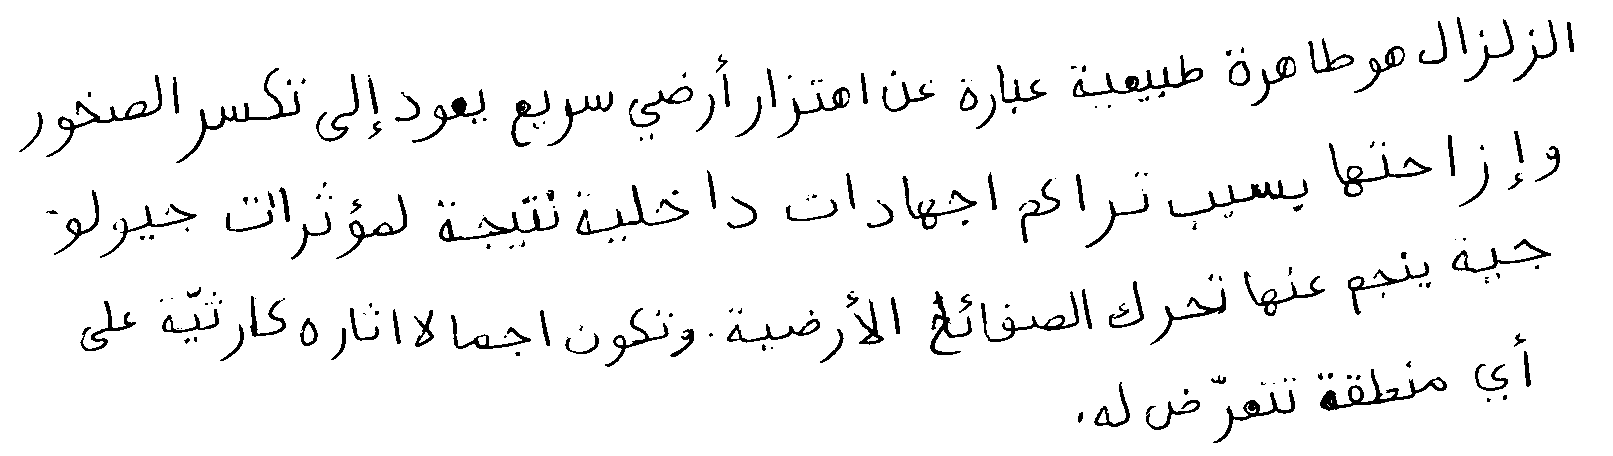 الزلزال هو طاهرة طبيعية عبارة عن اهتزاز أرضي سريع يعود إلى تكسر الصخور
وإزاحتها بسبب تراكم اجهادات داخلية نتيجة لمؤثرات جيولو-
جية ينجم عنها تحرك الصفائح الأرضية. وتكون اجمالا اثاره كارثيّة على
أي منطقة تتعرّض له.